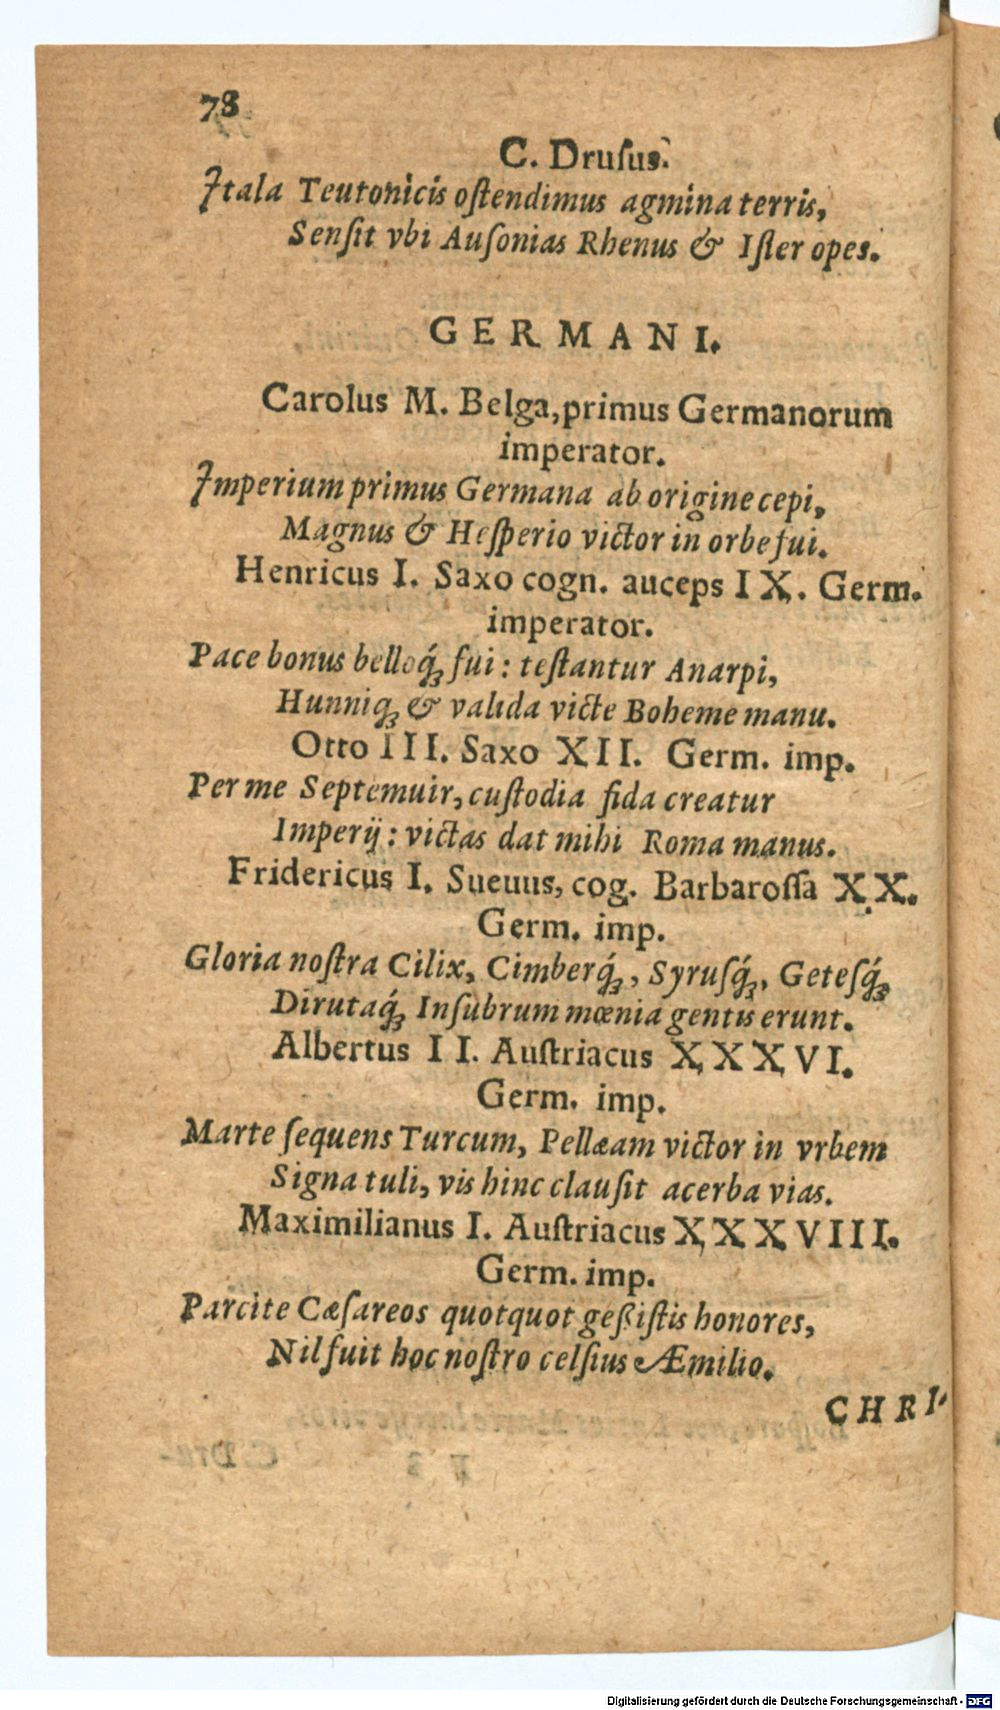 78
C. Druſus.
Itala Teutonicis oſtendimus agmina terris,
Senſit vbi Auſonias Rhenus & Iſter opes.
GERMANI.
Carolus M. Belga, primus Germanorum
imperator.
Imperium primus Germana ab origine cepi,
Magnus & Heſperio victor in orbe fui.
Henricus I. Saxo cogn. auceps IX. Germ.
imperator.
Pace bonus belloq́; fui: teſtantur Anarpi,
Hunniq; & valida victe Boheme manu.
Otto III. Saxo XII. Germ. imp.
Per me Septemuir, cuſtodia fida creatur
Imperij: victas dat mihi Roma manus.
Fridericus I. Sueuus, cog. Barbaroſſa XX.
Germ. imp.
Gloria noſtra Cilix, Cimberq́;, Syruſq́;, Geteſq́;,
Dirutaq́; Inſubrum mœnia gentis erunt.
Albertus II. Auſtriacus XXXVI.
Germ. imp.
Marte ſequens Turcum, Pellæam victor in vrbem
Signa tuli, vis hinc clauſit acerba vias.
Maximilianus I. Auſtriacus XXXVIII.
Germ. imp.
Parcite Cæſareos quotquot geßiſtis honores,
Nil fuit hoc noſtro celſius Æmilio.
CHRI-
Digitalisierung gefördert durch die Deutsche Forschungsgemeinschaft - DFG